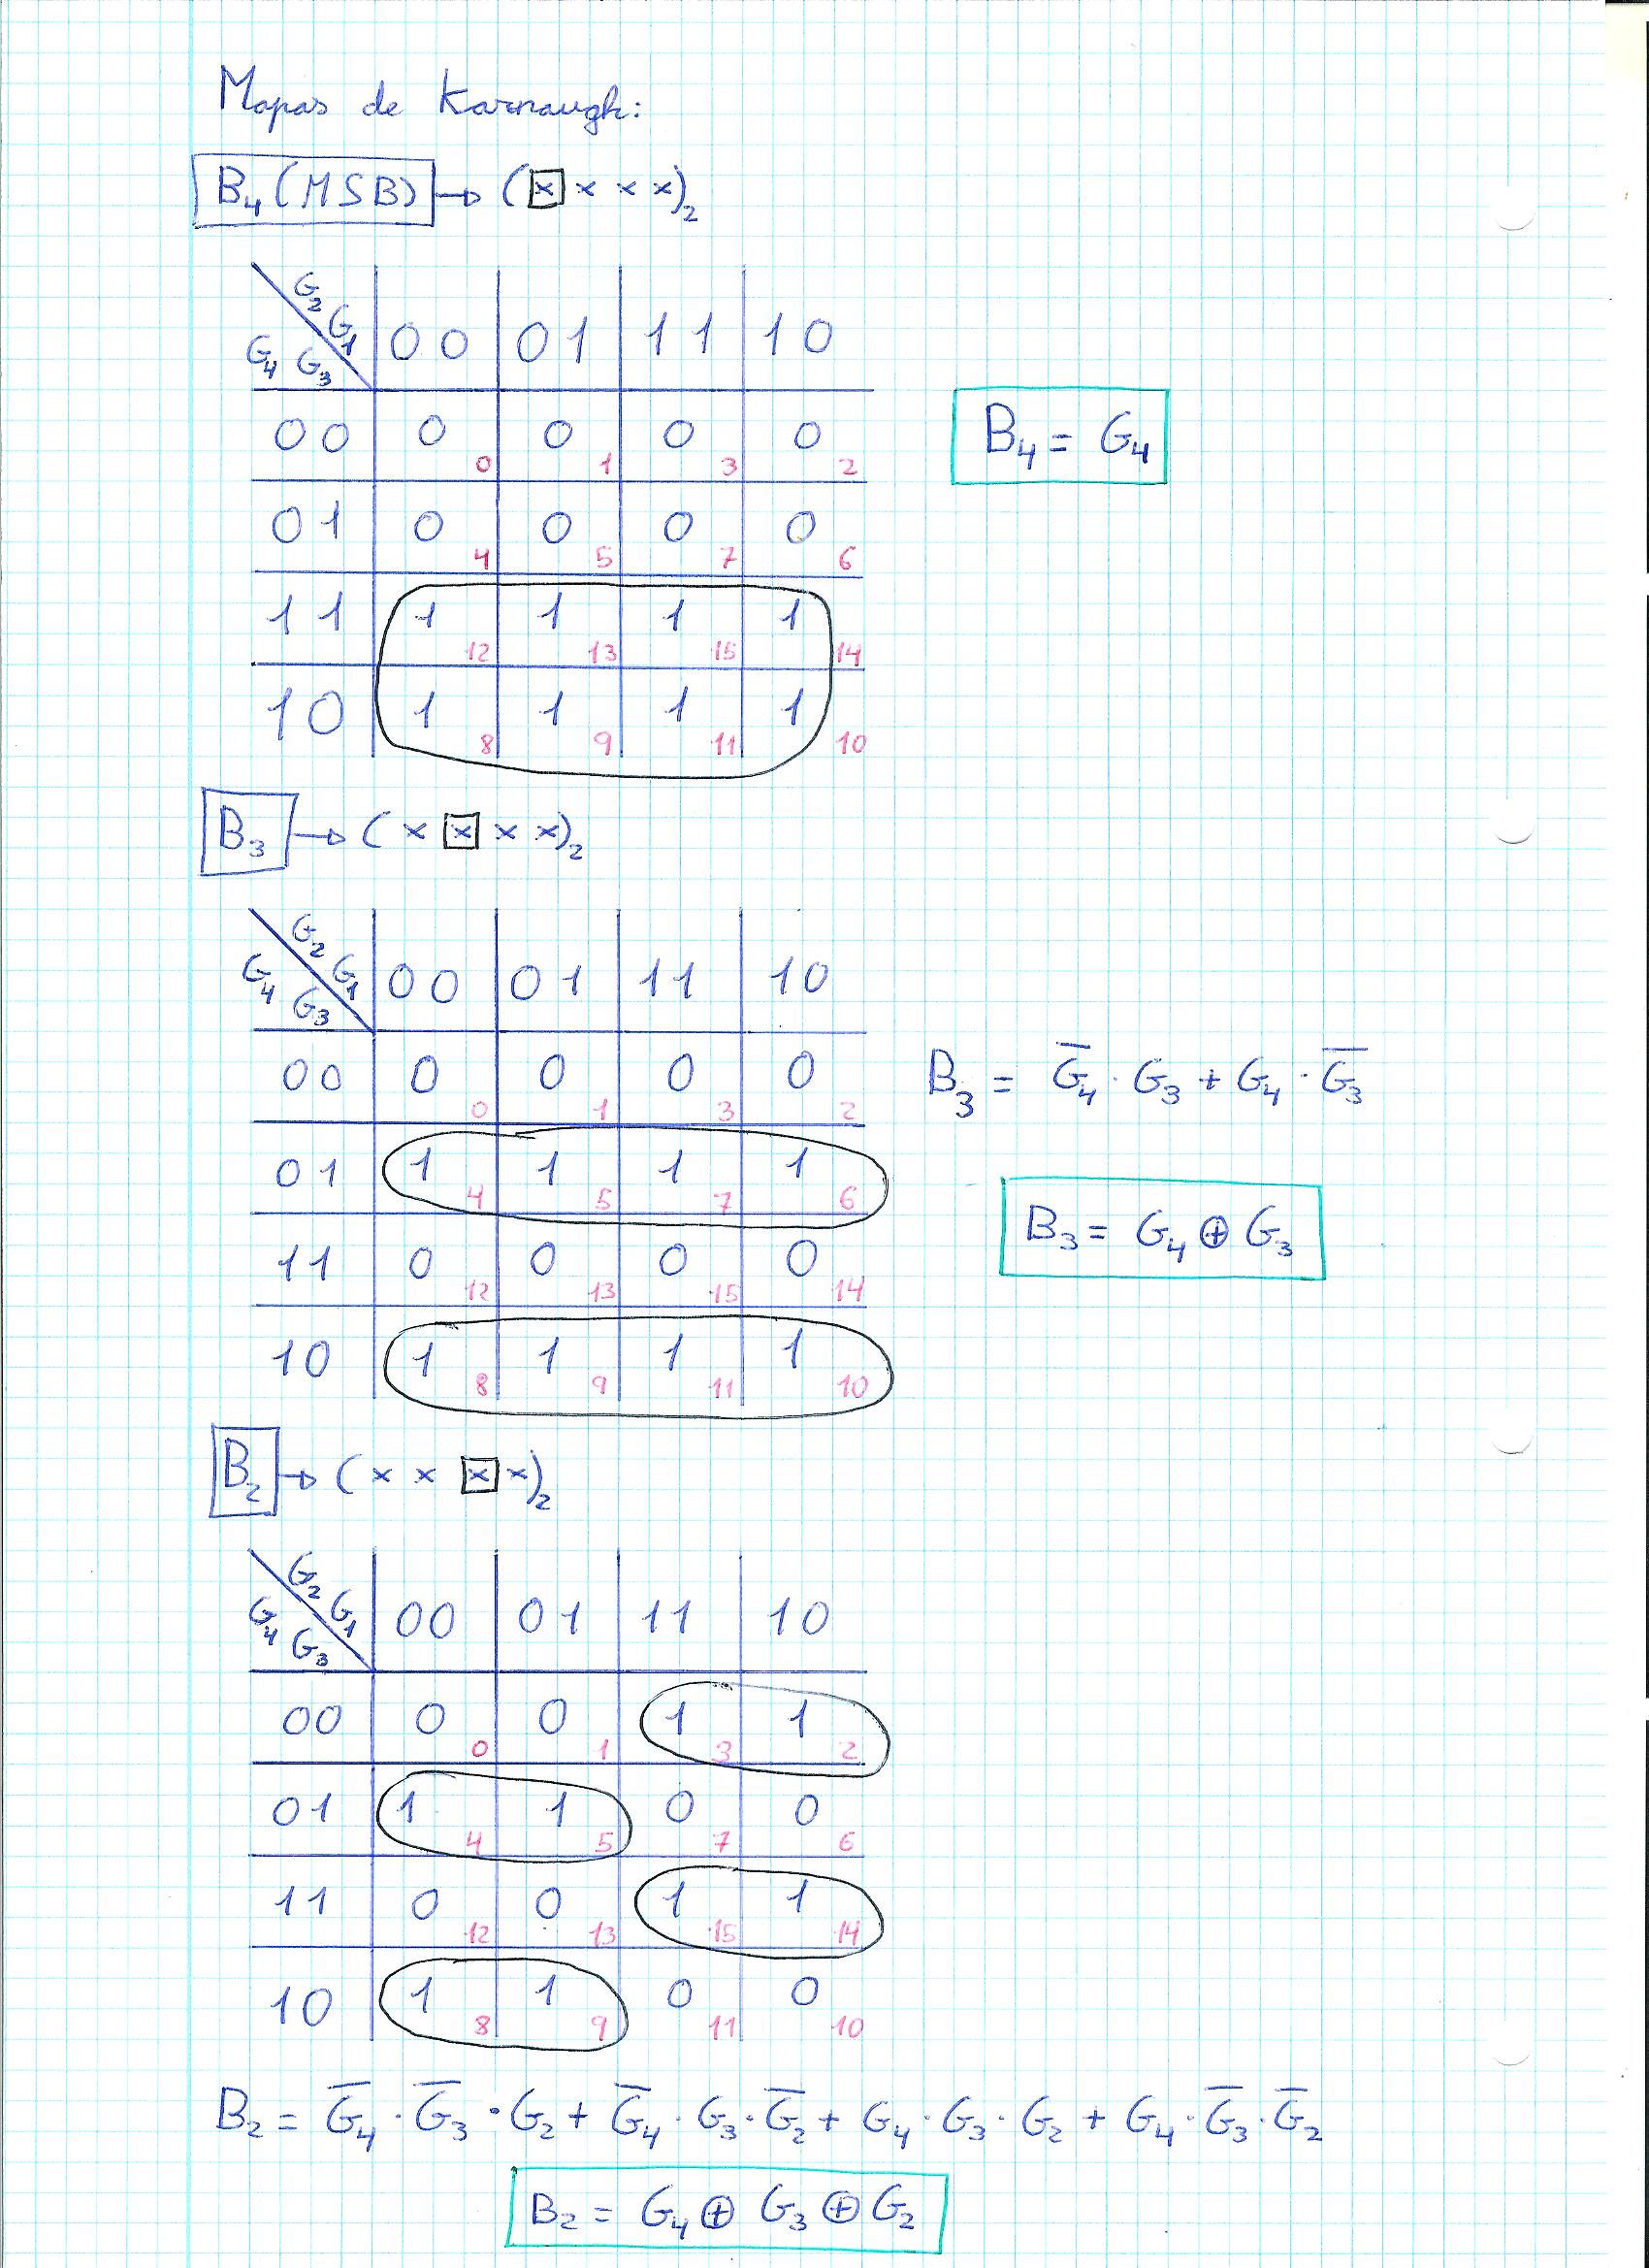 Mapas de Karnaugh:
B₄ (MSB) → (x x x x)₂
G₂ G₁
G₄ G₃
00 01 11 10
00 0 0 0 1 0 3 0 2
01 0 4 0 5 0 7 0 6
11 1 12 1 13 1 15 1 14
10 1 8 1 9 1 11 1 10
B₄ = G₄
B₃ → (x x x x)₂
G₂ G₁
G₄ G₃
00 01 11 10
00 0 0 0 1 0 3 0 2
01 1 4 1 5 1 7 1 6
11 0 12 0 13 0 15 0 14
10 1 8 1 9 1 11 1 10
B₃ = G̅₄ · G₃ + G₄ · G̅₃
B₃ = G₄ ⊕ G₃
B₂ → (x x x x)₂
G₂ G₁
G₄ G₃
00 01 11 10
00 0 0 0 1 1 3 1 2
01 1 4 1 5 0 7 0 6
11 0 12 0 13 1 15 1 14
10 1 8 1 9 0 11 0 10
B₂ = G̅₄ · G̅₃ · G₂ + G̅₄ · G₃ · G̅₂ + G₄ · G₃ · G₂ + G₄ · G̅₃ · G̅₂
B₂ = G₄ ⊕ G₃ ⊕ G₂